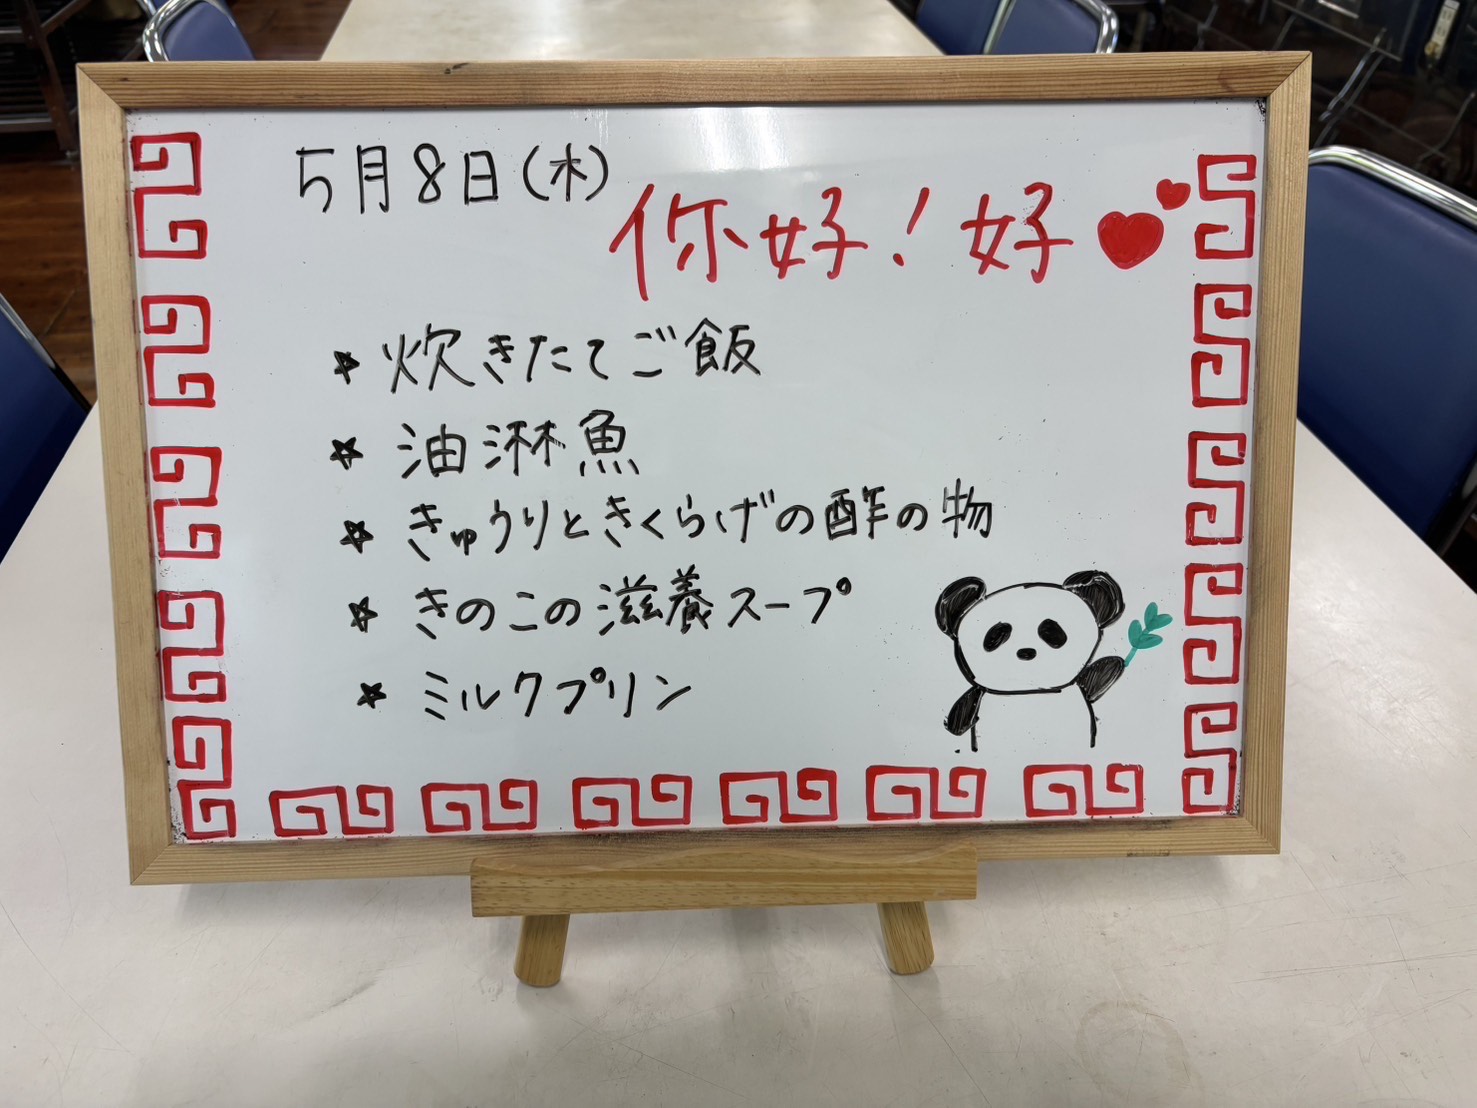 5月8日(木)
你好!好
炊きたてご飯
油淋魚
きゅうりときくらげの酢の物
きのこの滋養スープ
ミルクプリン